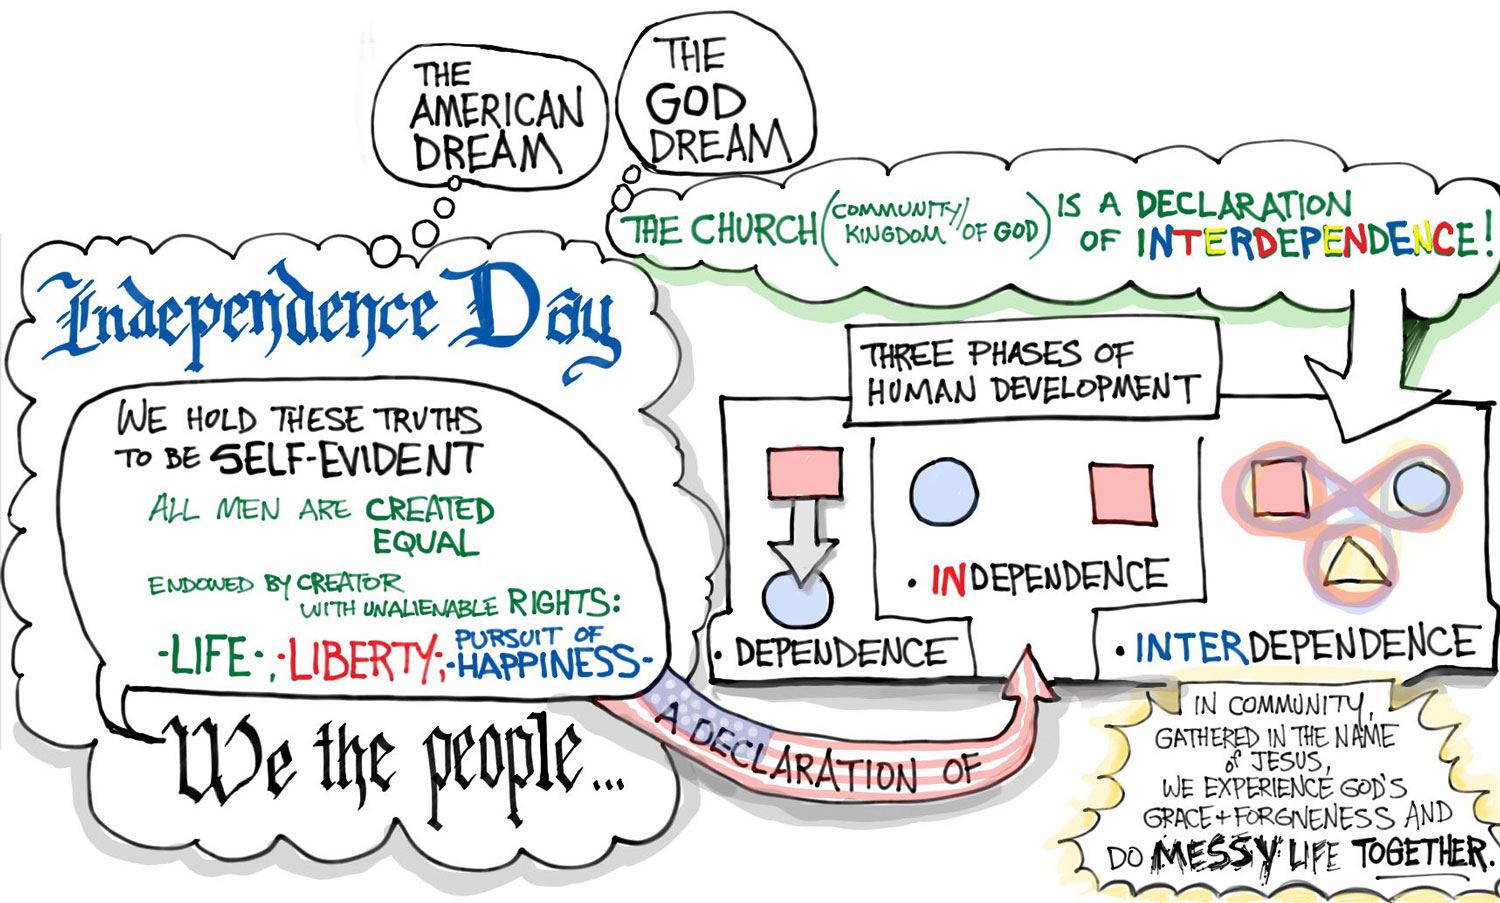 THE
AMERICAN
DREAM
THE
GOD
DREAM
THE CHURCH (COMMUNITY/KINGDOM OF GOD) IS A DECLARATION
OF INTERDEPENDENCE!
Independence Day
WE HOLD THESE TRUTHS
TO BE SELF-EVIDENT
ALL MEN ARE CREATED
EQUAL
ENDOWED BY CREATOR
WITH UNALIENABLE RIGHTS:
-LIFE-; -LIBERTY-; -PURSUIT OF
HAPPINESS-
We the people...
A DECLARATION OF
THREE PHASES OF
HUMAN DEVELOPMENT
• DEPENDENCE
• INDEPENDENCE
• INTERDEPENDENCE
IN COMMUNITY,
GATHERED IN THE NAME
of JESUS,
WE EXPERIENCE GOD'S
GRACE + FORGIVENESS AND
DO MESSY LIFE TOGETHER.